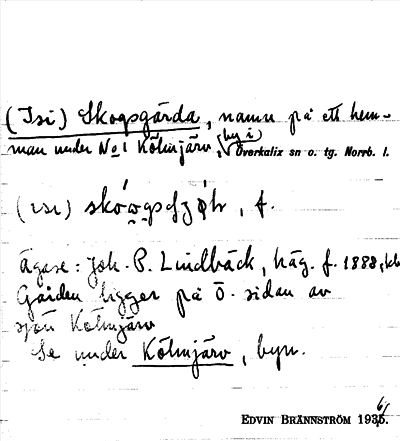 (Isi) Skogsgårda, namn på ett hem-
man under No 1 Kölmjärv, by i Överkalix sn o. tg. Norrb. l.
(ısı) , f.
ägare: Joh. P. Lindbäck, häg. f. 1888,
Gården ligger på Ö. sidan av
sjön Kölmjärv
Se under Kölmjärv, byn.
EDVIN BRÄNNSTRÖM 1936.